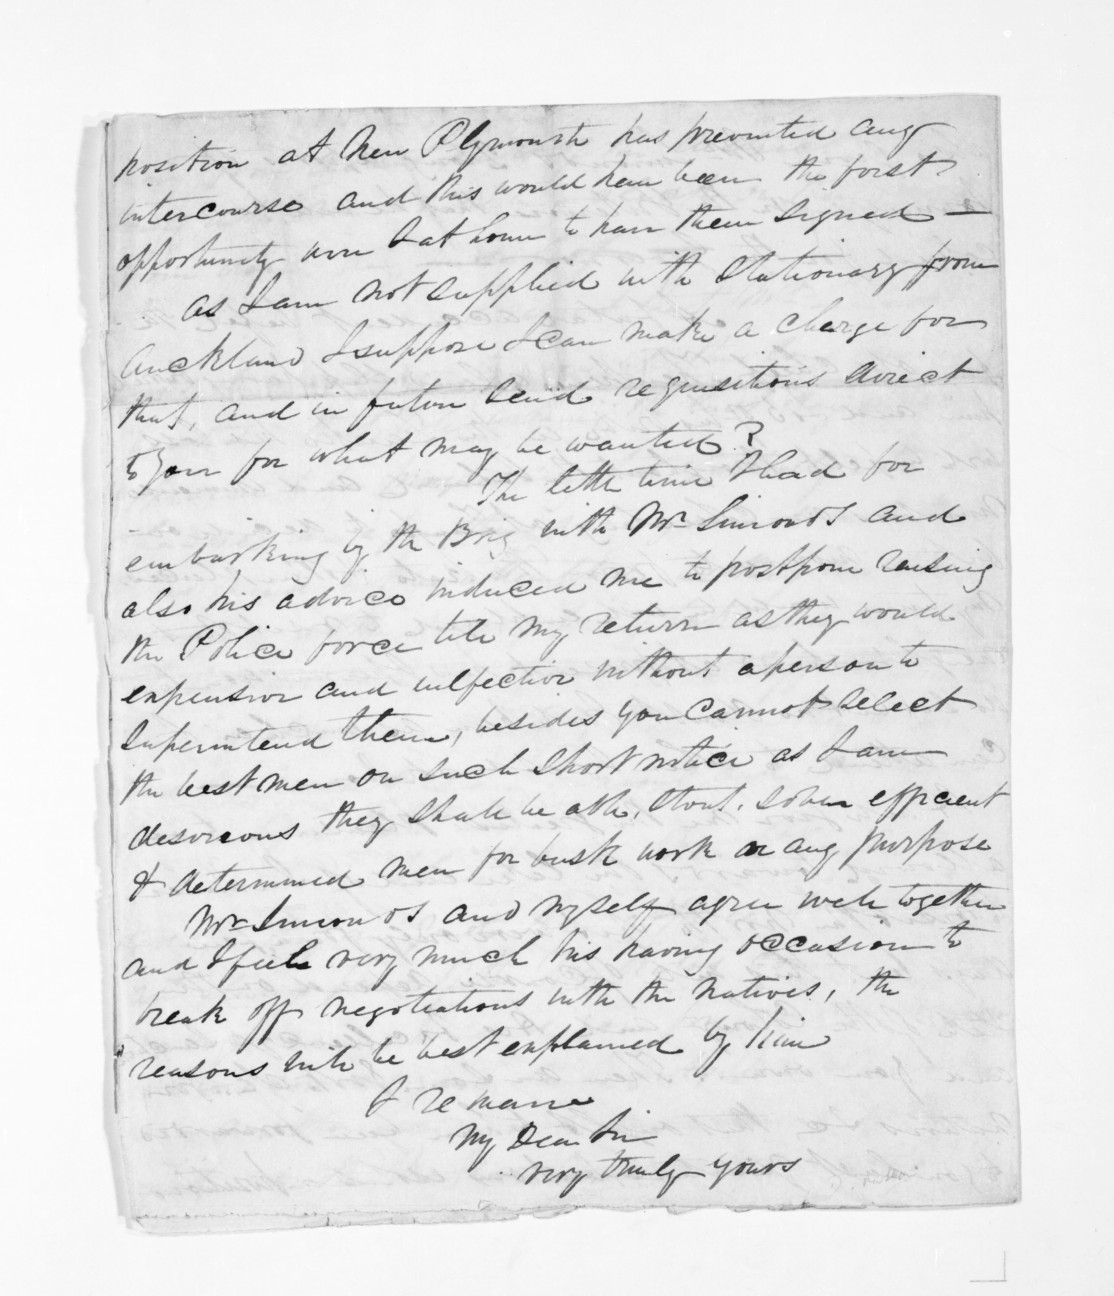 position at New Plymouth has prevented any
intercourse and this would have been the first
opportunity were I at home to have them signed —
as I am not supplied with stationary from
Auckland I suppose I can make a charge for
that, and in future send requisitions direct
to you for what may be wanted?
The little time I had for
embarking by the Brig with Mr Simonds and
also his advice induced me to postpone raising
the Police force till my return as they would
expensive and inefective without a person to
superintend them, besides you cannot select
the best men on such short notice as I am
desireous they shall be able, stout, sober efficient
& determined men for bush work or any purpose
Mr Simonds and myself agree well together
and I feel very much his having occasion to
break off negotiations with the natives, the
reasons will be best explained by him
I remain
My Dear Sir
very truly yours